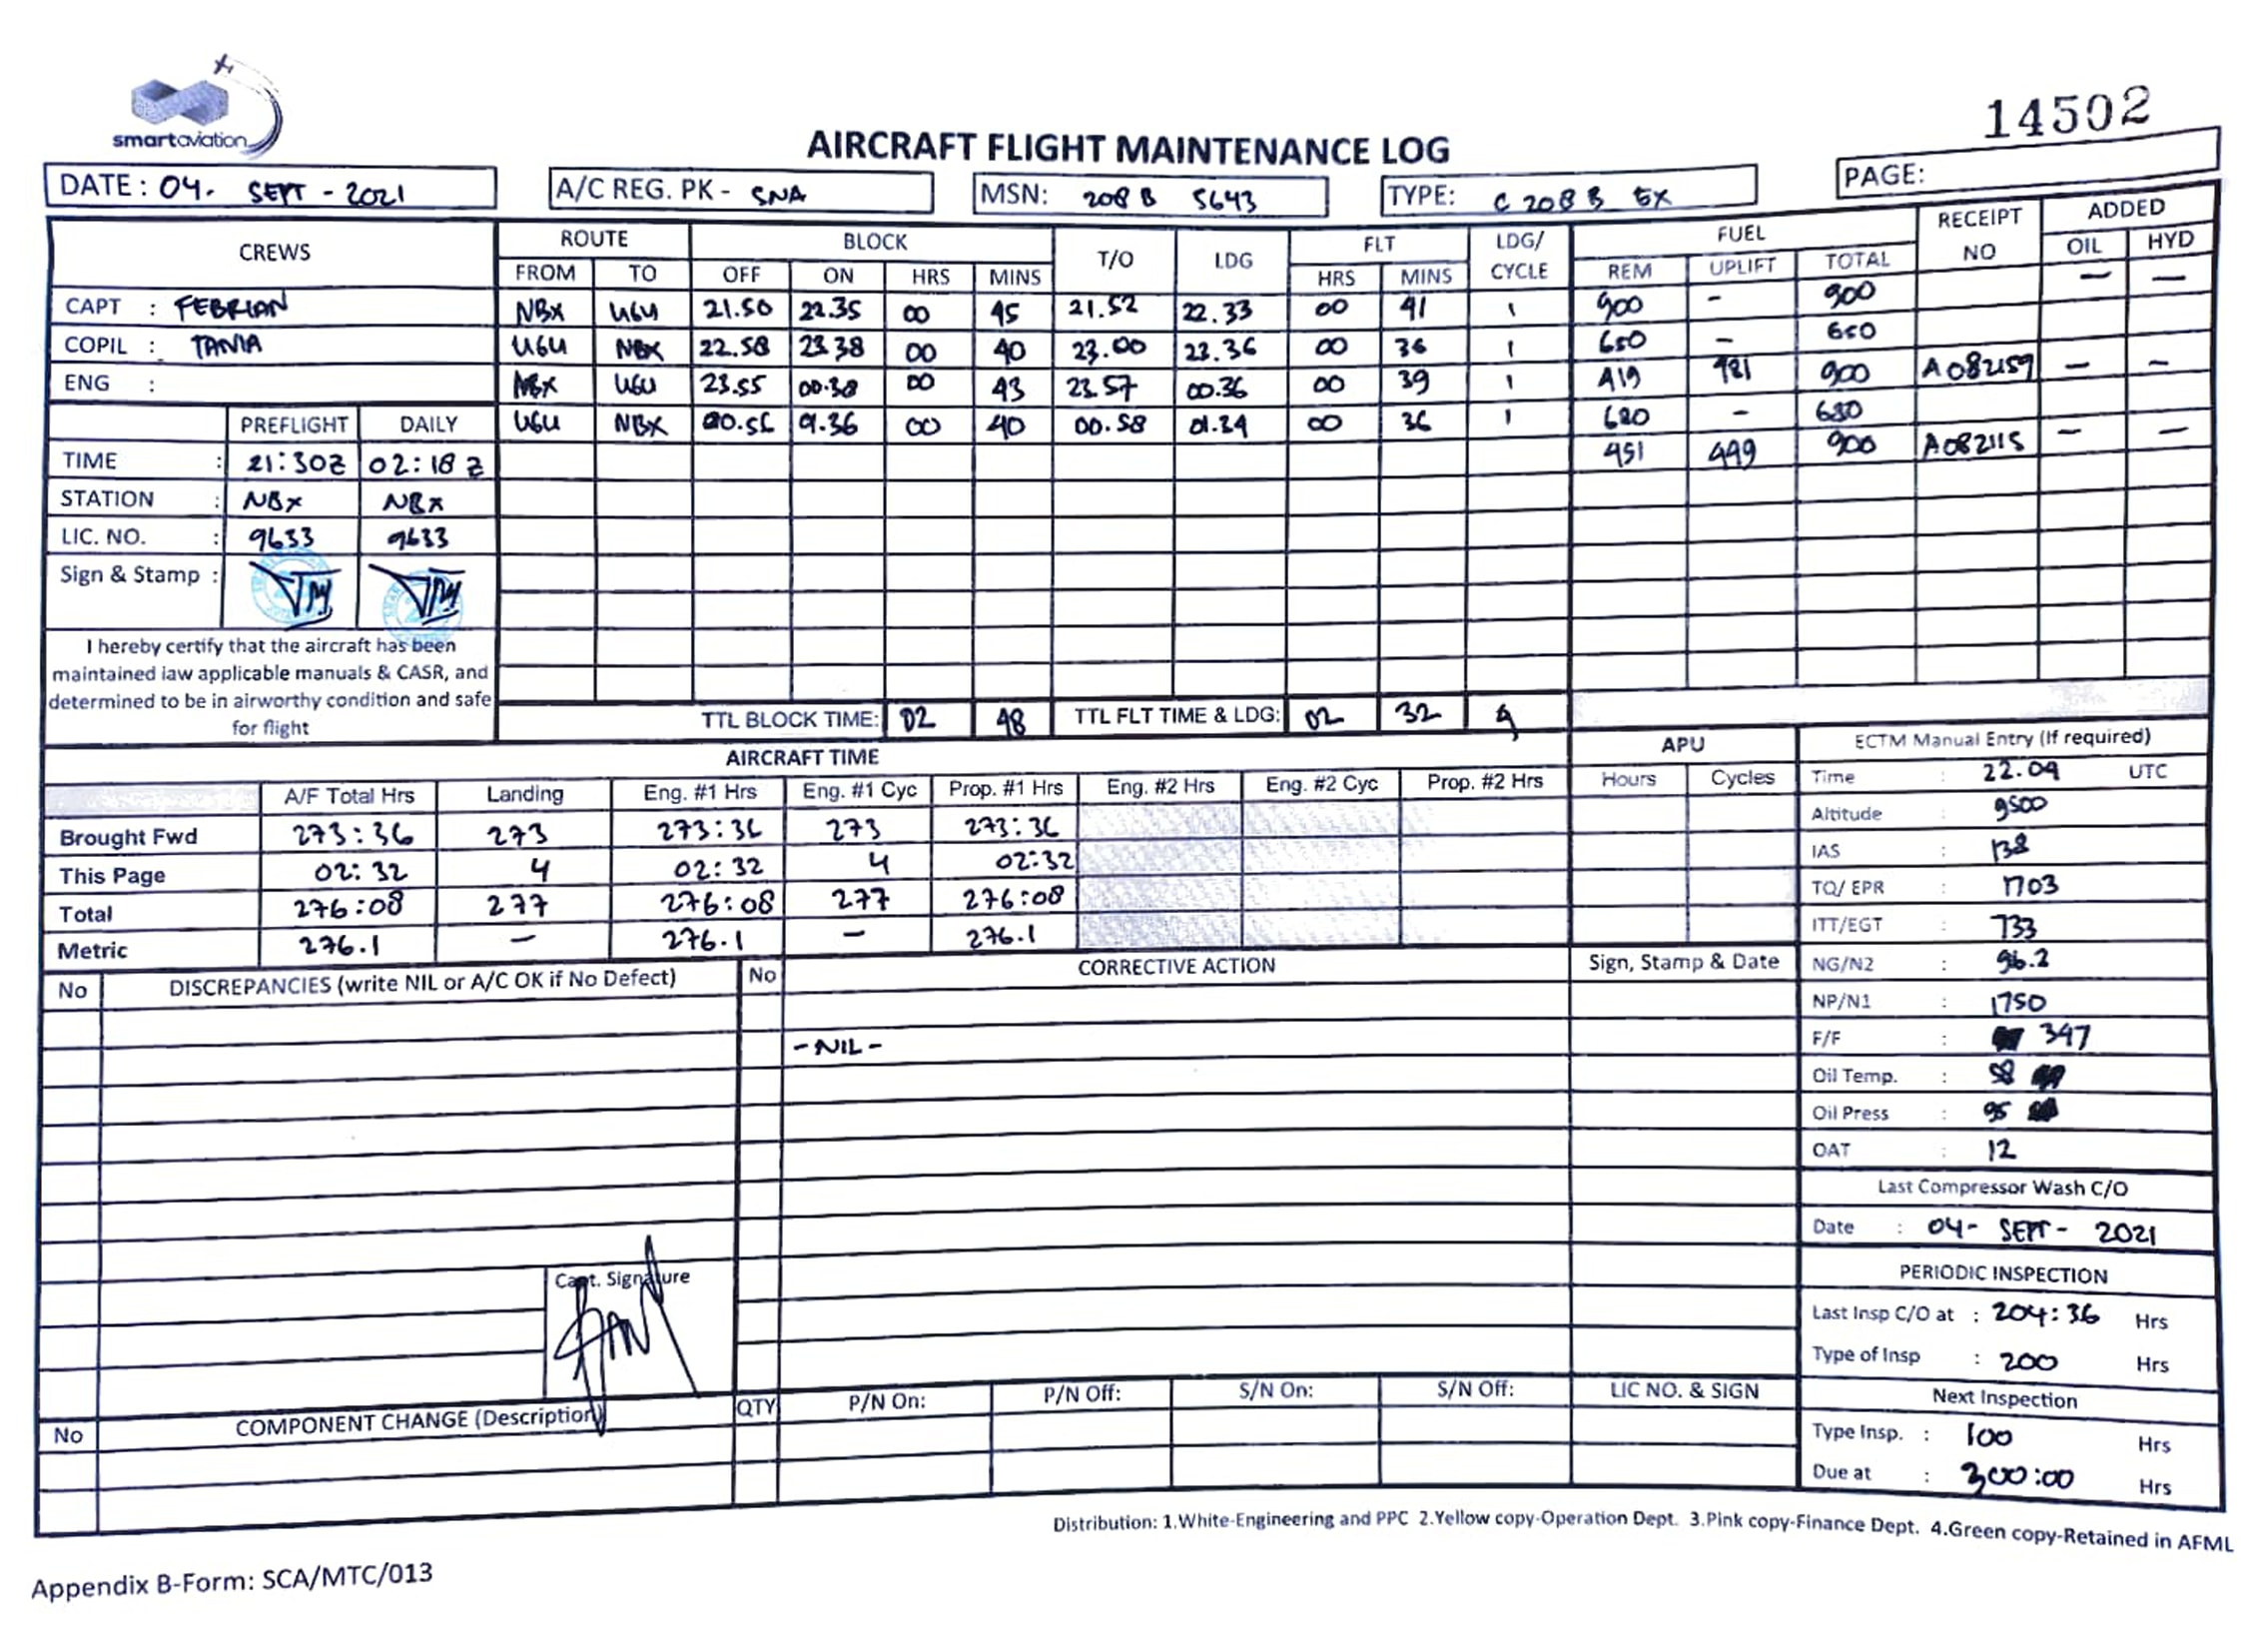 smartaviation
14502
AIRCRAFT FLIGHT MAINTENANCE LOG
DATE : 04. SEPT - 2021 A/C REG. PK - SNA MSN: 208 B 5643 TYPE: C 208 B EX PAGE:
CREWS ROUTE BLOCK T/O LDG FLT LDG/ CYCLE FUEL RECEIPT NO ADDED
FROM TO OFF ON HRS MINS HRS MINS REM UPLIFT TOTAL OIL HYD
— —
CAPT : FEBRIAN NBX UGU 21.50 22.35 00 45 21.52 22.33 00 41 1 900 - 900
COPIL : TANIA UGU NBX 22.58 23.38 00 40 23.00 23.36 00 36 1 650 - 650
ENG : NBX UGU 23.55 00.38 00 43 23.57 00.36 00 39 1 419 481 900 A082159 — —
PREFLIGHT DAILY UGU NBX 00.56 01.36 00 40 00.58 01.34 00 36 1 680 - 680
TIME : 21:30Z 02:18Z 451 449 900 A082115 — —
STATION : NBX NBX
LIC. NO. : 9633 9633
Sign & Stamp :
I hereby certify that the aircraft has been
maintained iaw applicable manuals & CASR, and
determined to be in airworthy condition and safe
for flight
TTL BLOCK TIME: 02 48 TTL FLT TIME & LDG: 02 32 4
AIRCRAFT TIME APU ECTM Manual Entry (If required)
A/F Total Hrs Landing Eng. #1 Hrs Eng. #1 Cyc Prop. #1 Hrs Eng. #2 Hrs Eng. #2 Cyc Prop. #2 Hrs Hours Cycles Time : 22.09 UTC
Brought Fwd 273:36 273 273:36 273 273:36 Altitude : 9500
This Page 02:32 4 02:32 4 02:32 IAS : 138
Total 276:08 277 276:08 277 276:08 TQ/ EPR : 1703
Metric 276.1 — 276.1 — 276.1 ITT/EGT : 733
No DISCREPANCIES (write NIL or A/C OK if No Defect) No CORRECTIVE ACTION Sign, Stamp & Date NG/N2 : 96.2
NP/N1 : 1750
- NIL - F/F : 347
Oil Temp. : 58
Oil Press : 95
OAT : 12
Last Compressor Wash C/O
Date : 04 - SEPT - 2021
Capt. Signature
PERIODIC INSPECTION
Last Insp C/O at : 204:36 Hrs
Type of Insp : 200 Hrs
No COMPONENT CHANGE (Description) QTY P/N On: P/N Off: S/N On: S/N Off: LIC NO. & SIGN Next Inspection
Type Insp. : 100 Hrs
Due at : 300:00 Hrs
Distribution: 1.White-Engineering and PPC 2.Yellow copy-Operation Dept. 3.Pink copy-Finance Dept. 4.Green copy-Retained in AFML
Appendix B-Form: SCA/MTC/013